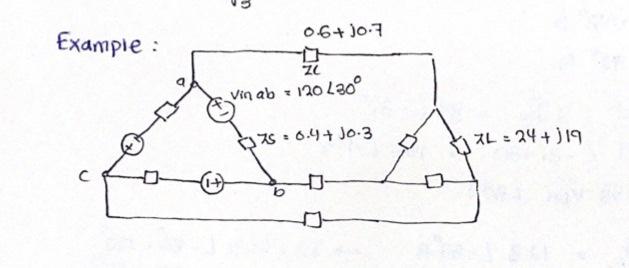 √3
Example :
0.6 + j0.7
zl
a
+
-
Vin ab = 120∠30°
zs = 0.4 + j0.3
zL = 24 + j19
+
c
1+
b